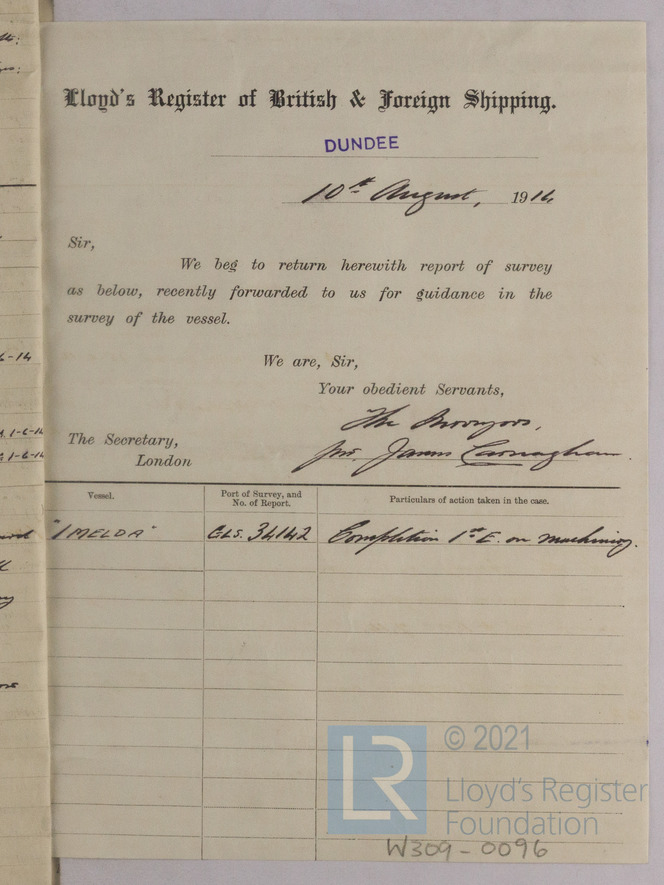 Lloyd's Register of British & Foreign Shipping.
DUNDEE
10th August, 1914
Sir,
We beg to return herewith report of survey
as below, recently forwarded to us for guidance in the
survey of the vessel.
We are, Sir,
Your obedient Servants,
The Surveyors,
per. James Carnaghan.
The Secretary,
London
Vessel. Port of Survey, and No. of Report. Particulars of action taken in the case.
"IMELDA" GLS. 34142 Completion 1st E. on machinery.
6-14
1-6-14
1-6-14
LR
© 2021
Lloyd's Register
Foundation
W309-0096